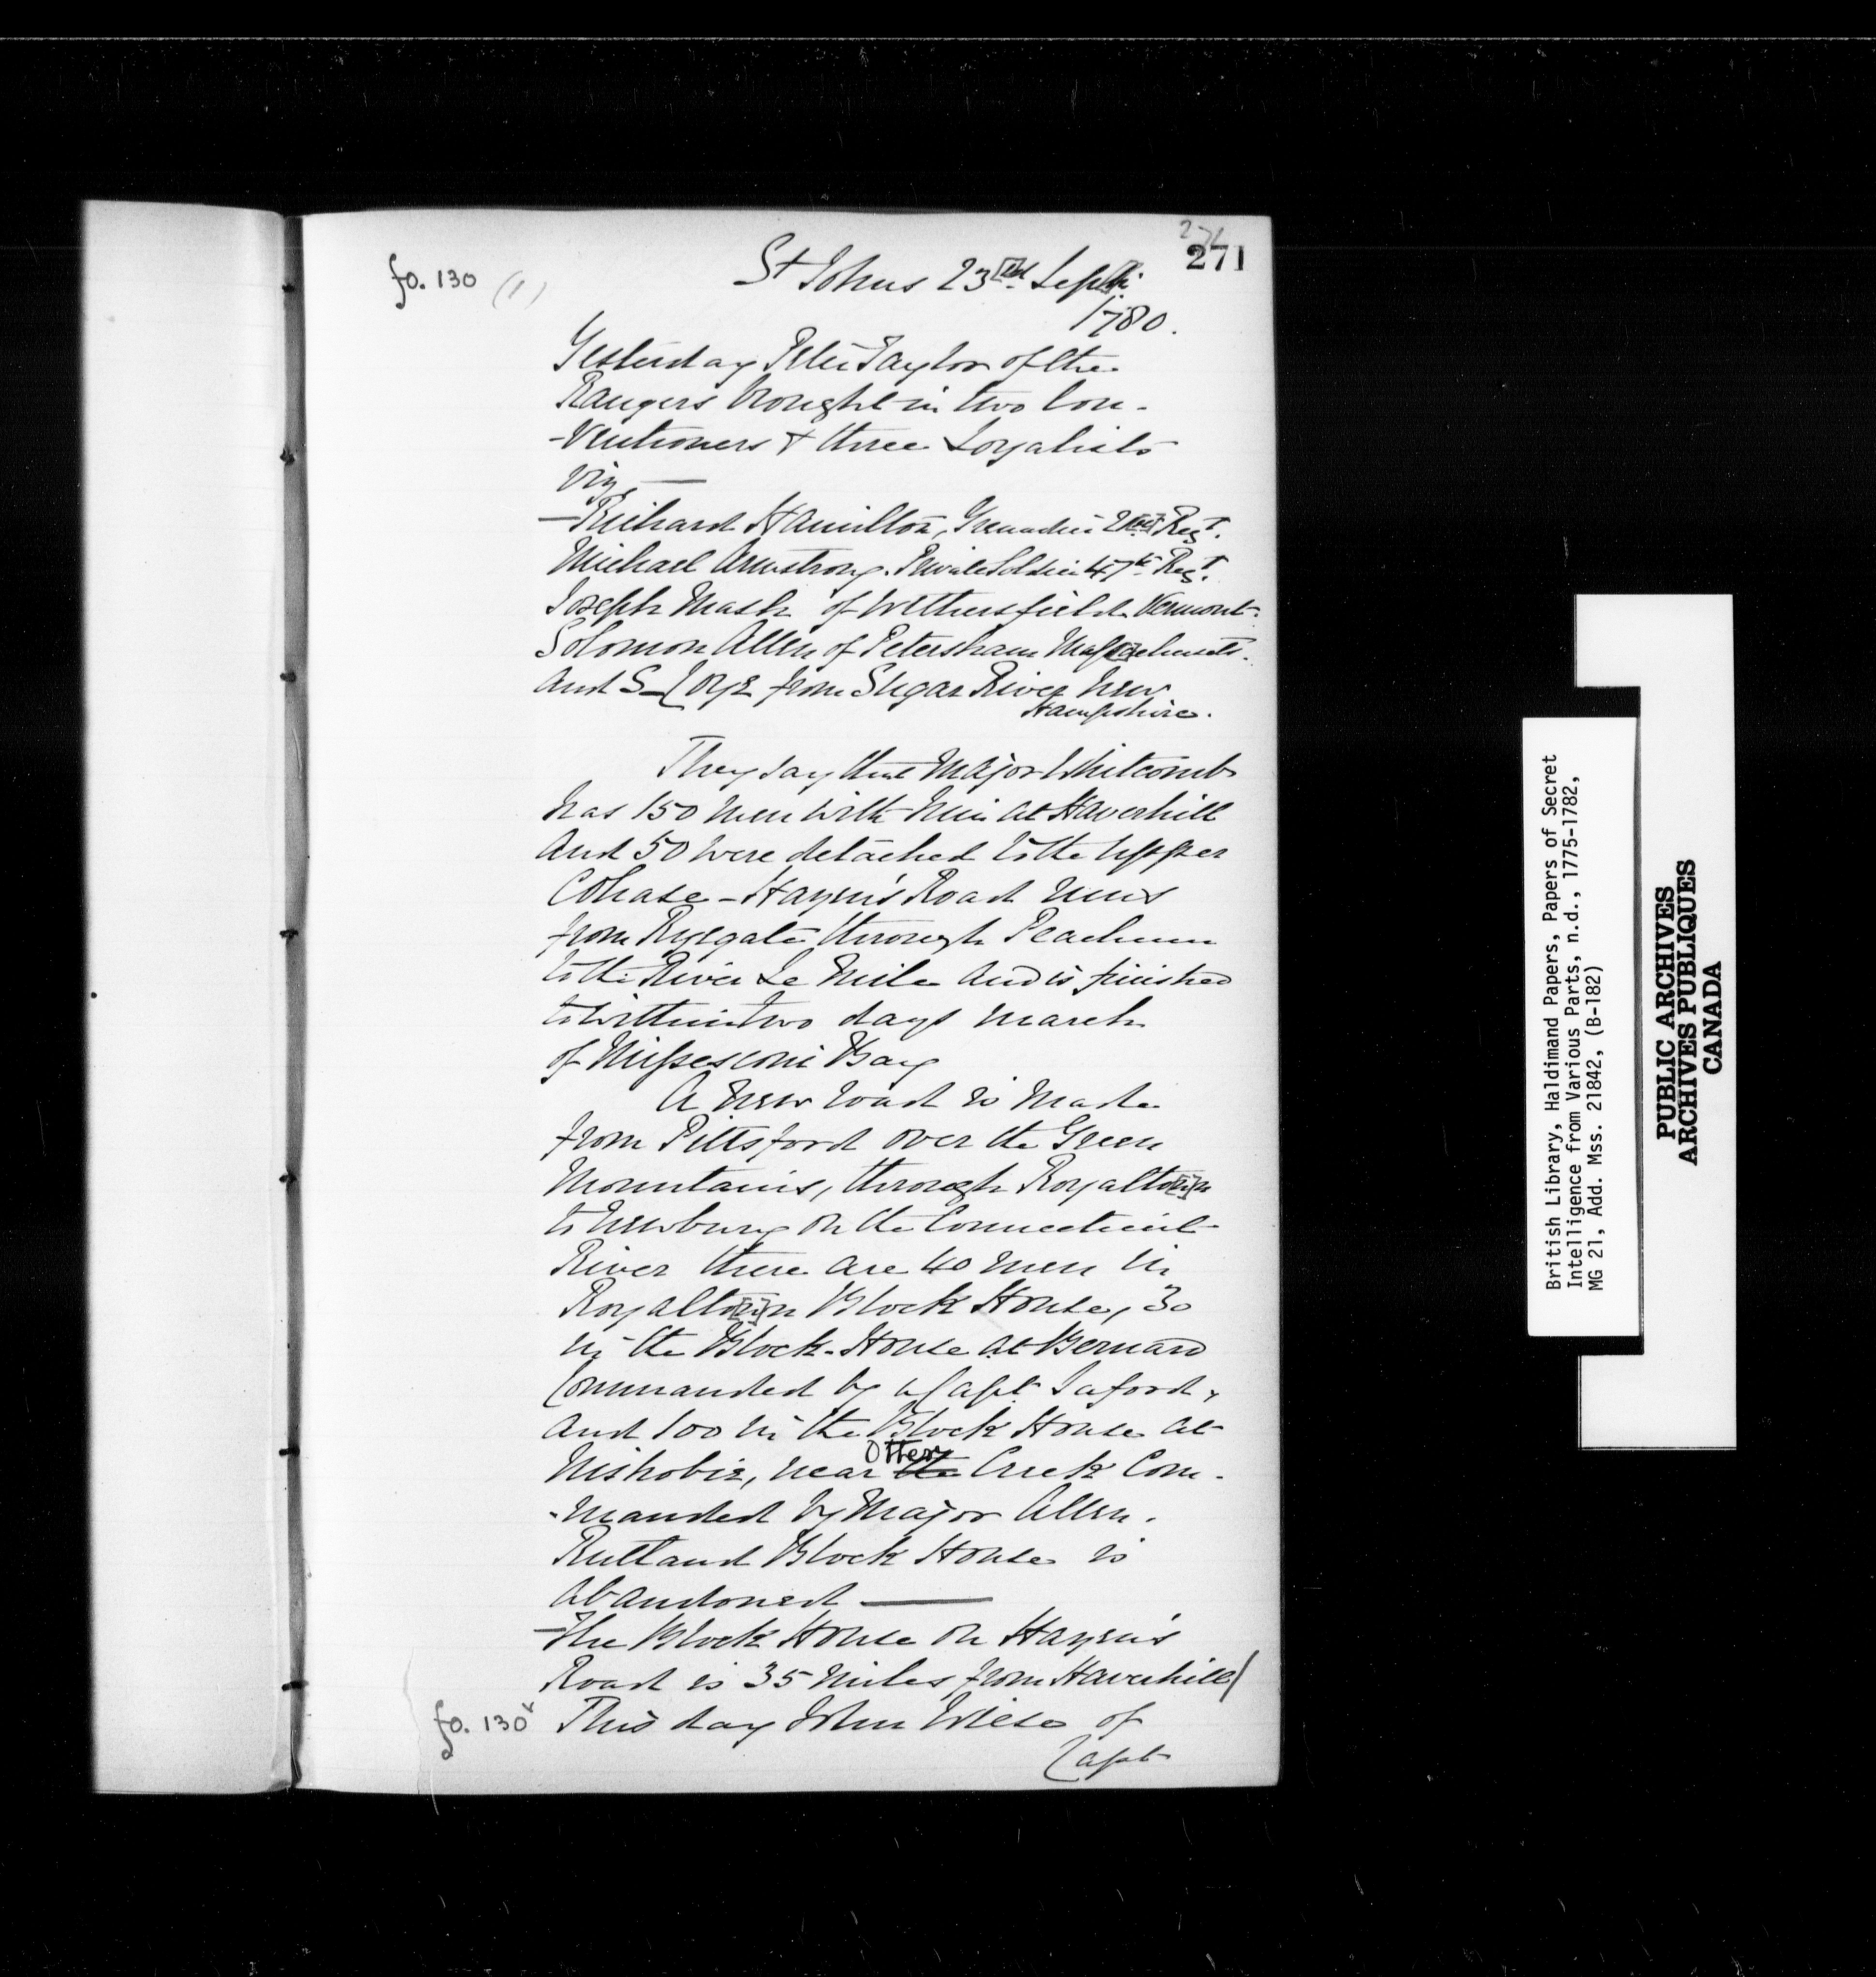 271
fo. 130 (1)
St Johns 23rd Septr
1780.
Yesterday Peter Taylor of the
Rangers brought in two Con-
-ventioners & three Loyalists
viz. —
—Richard Hamilton, Grenadier Regt.
Michael Armstrong. Private Soldier 47th Regt.
Joseph Mash of Wethersfield Vermont.
Solomon Allen of Petersham Massachusets.
and S— from Sugar River New
Hampshire.
They say that Major Whitcomb
has 150 men with him at Haverhill
and 50 were detached to the upper
Cohase - Haysen's Road runs
from Ryegate through Peachum
to the River Le Mile and is finished
to within two days march
of Missescoui Bay
A new road is made
from Pittsford over the Green
Mountains, through Royaltown
to Newbury on the Connecticut
River there are 40 men in
Royaltown Block House, 30
in the Block-House at Bernard
Commanded by a Capt Saford,
and 100 in the Block House at
Otter
Nishobie, near the Creek Com-
-manded by Major Allen.
Rutland Block House is
abandoned —
—The Block House on Haysen's
Road is 35 miles from Haverhill/
fo. 130v This day John Wiese of
Capt
British Library, Haldimand Papers, Papers of Secret
Intelligence from Various Parts, n.d., 1775-1782,
MG 21, Add. Mss. 21842, (B-182)
PUBLIC ARCHIVES
ARCHIVES PUBLIQUES
CANADA